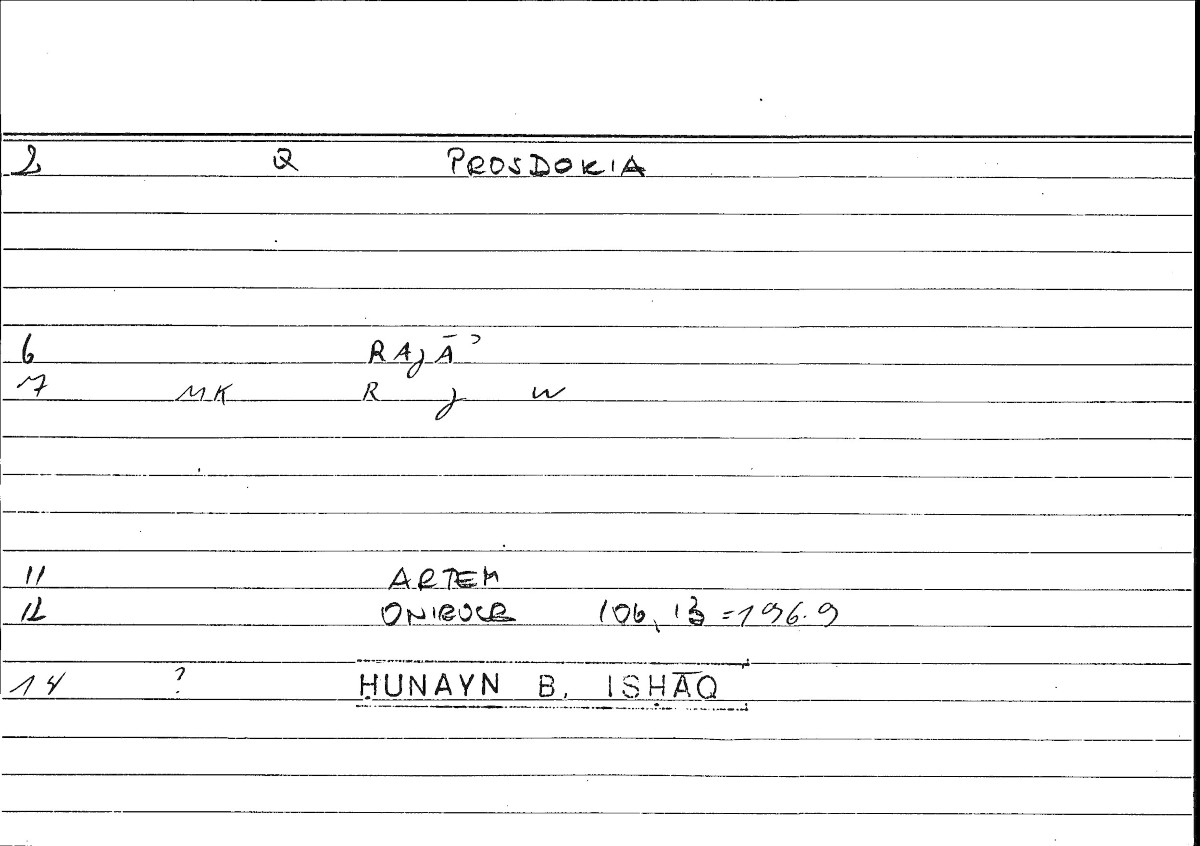 2 Q PROSDOKIA
6 RAJĀʾ
7 MK R J W
11 ARTEM
12 ONIROCR 106, 13 = 196.9
14 ? ḤUNAYN B. ISḤĀQ